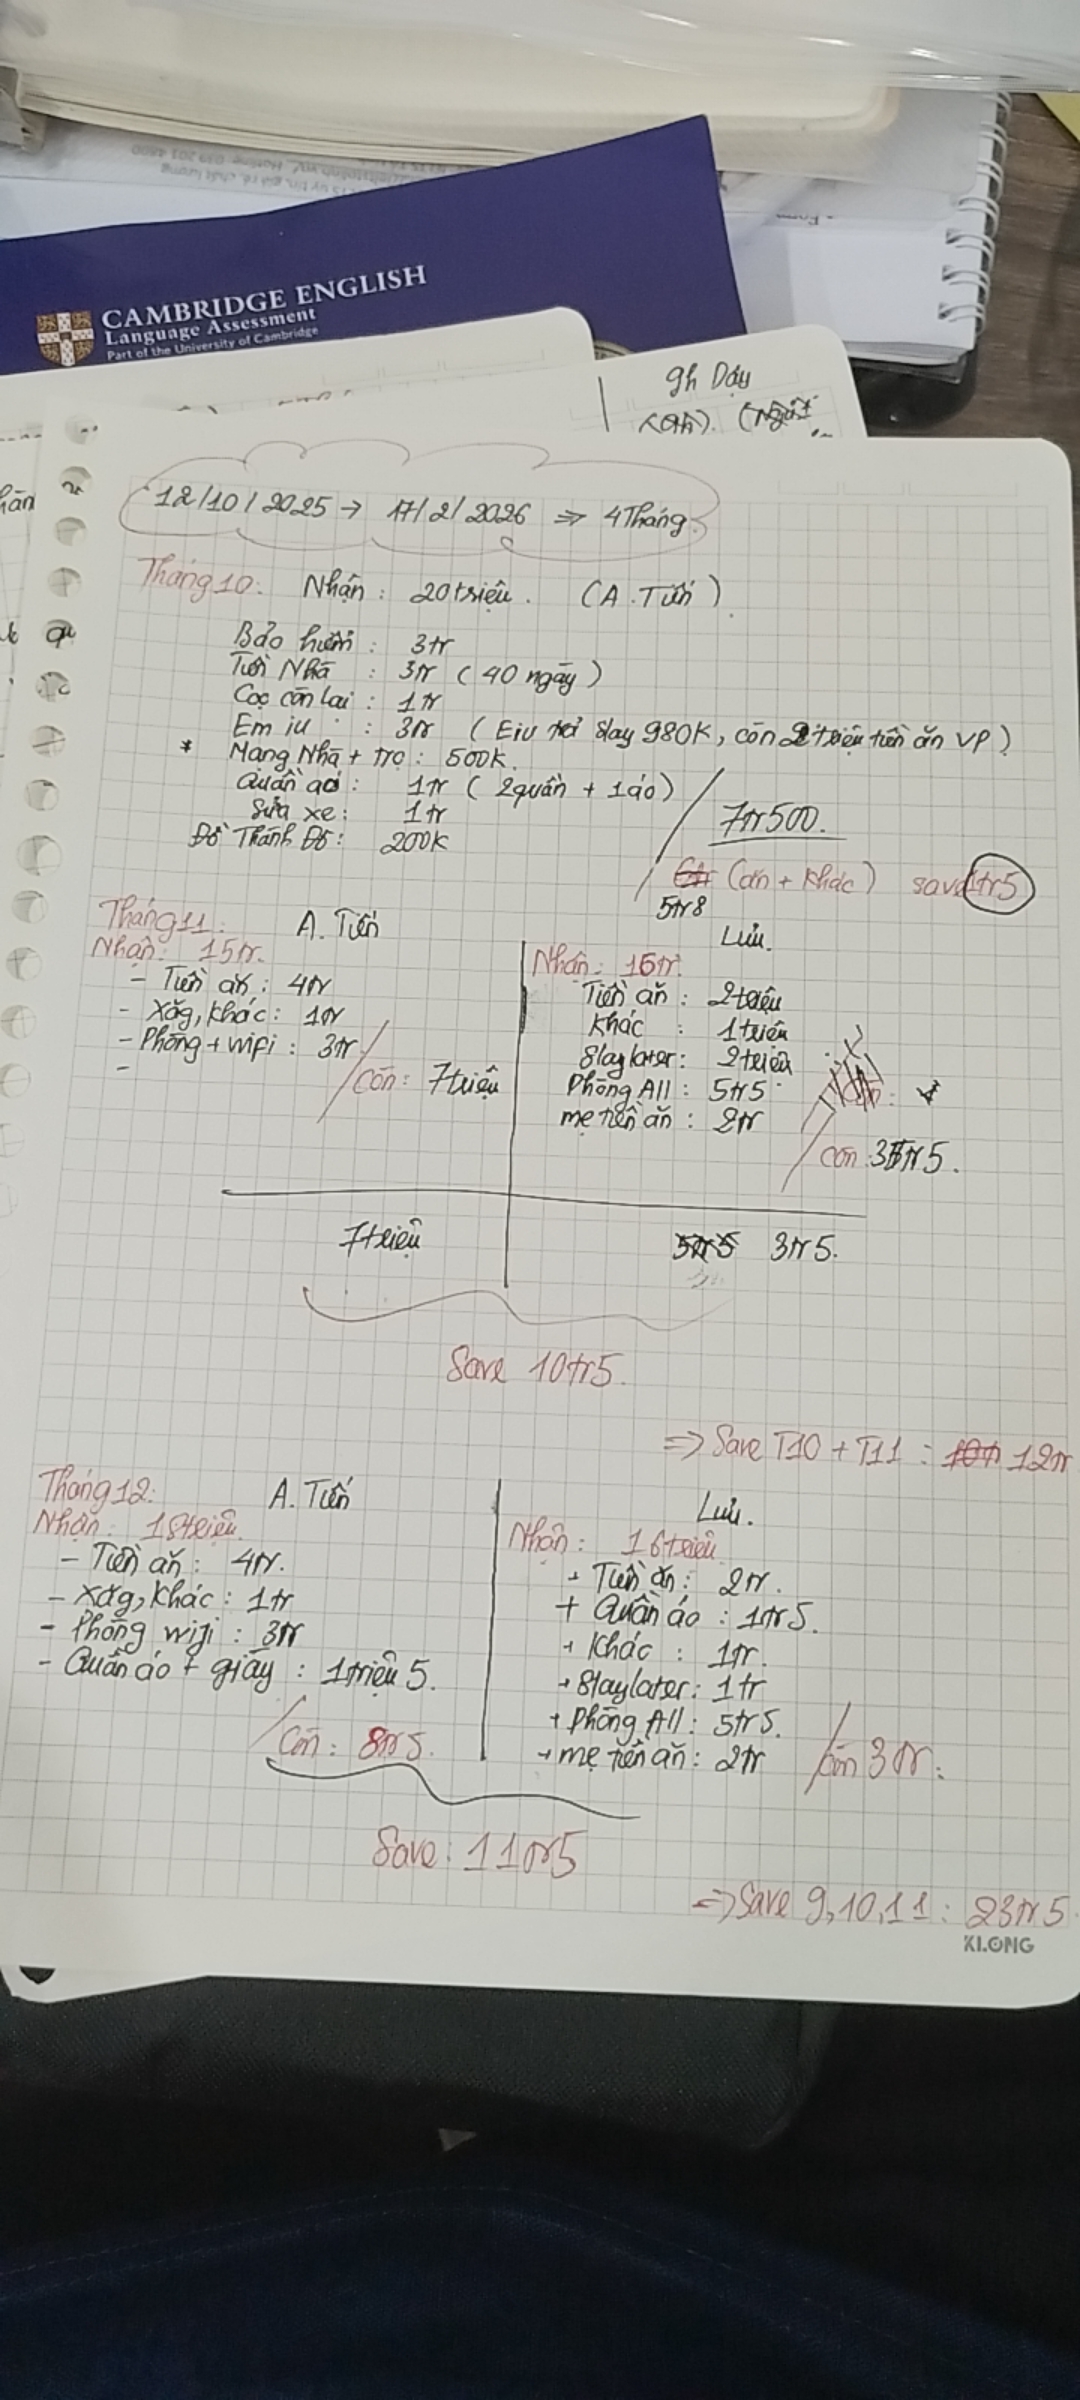 CAMBRIDGE ENGLISH
Language Assessment
Part of the University of Cambridge
gh Dạy
12/10/2025 → 17/2/2026 => 4 Tháng
Tháng 10: Nhận: 20 triệu. (A. Tiến)
Bảo hiểm: 3tr
Tiền Nhà: 3tr (40 ngày)
Cọc còn lại: 1tr
Em iu: 3tr (Eiu trả Slay 980K, còn 2 triệu tiền ăn VP)
* Mạng Nhà + trọ: 500K.
Quần áo: 1tr (2 quần + 1 áo)
Sửa xe: 1tr
7tr500.
Đồ Thành Đô: 200K
(ăn + khác) save 1tr5
5tr8
Tháng 11: A. Tiến
Lưu.
Nhận: 15tr.
- Tiền ăn: 4tr
- Xăg, khác: 1tr
- Phòng + wifi: 3tr
-
Còn: 7 triệu
Nhận: 16tr
Tiền ăn: 2 triệu
Khác: 1 triệu
Slaylater: 2 triệu
Phòng All: 5tr5
mẹ tiền ăn: 2tr
Còn: 3tr5.
7 triệu
5tr5 3tr5.
Save 10tr5.
=> Save T10 + T11: 12tr
Tháng 12: A. Tiến
Lưu.
Nhận: 18 triệu.
- Tiền ăn: 4tr.
- Xăg, khác: 1tr
- Phòng wifi: 3tr
- Quần áo + giày: 1 triệu 5.
Còn: 8tr5.
Nhận: 16 triệu
+ Tiền ăn: 2tr.
+ Quần áo: 1tr5.
+ Khác: 1tr.
+ Slaylater: 1tr
+ Phòng All: 5tr5.
+ mẹ tiền ăn: 2tr
Còn 3tr.
Save: 11tr5
=> Save 9,10,11: 23tr5.
KLONG